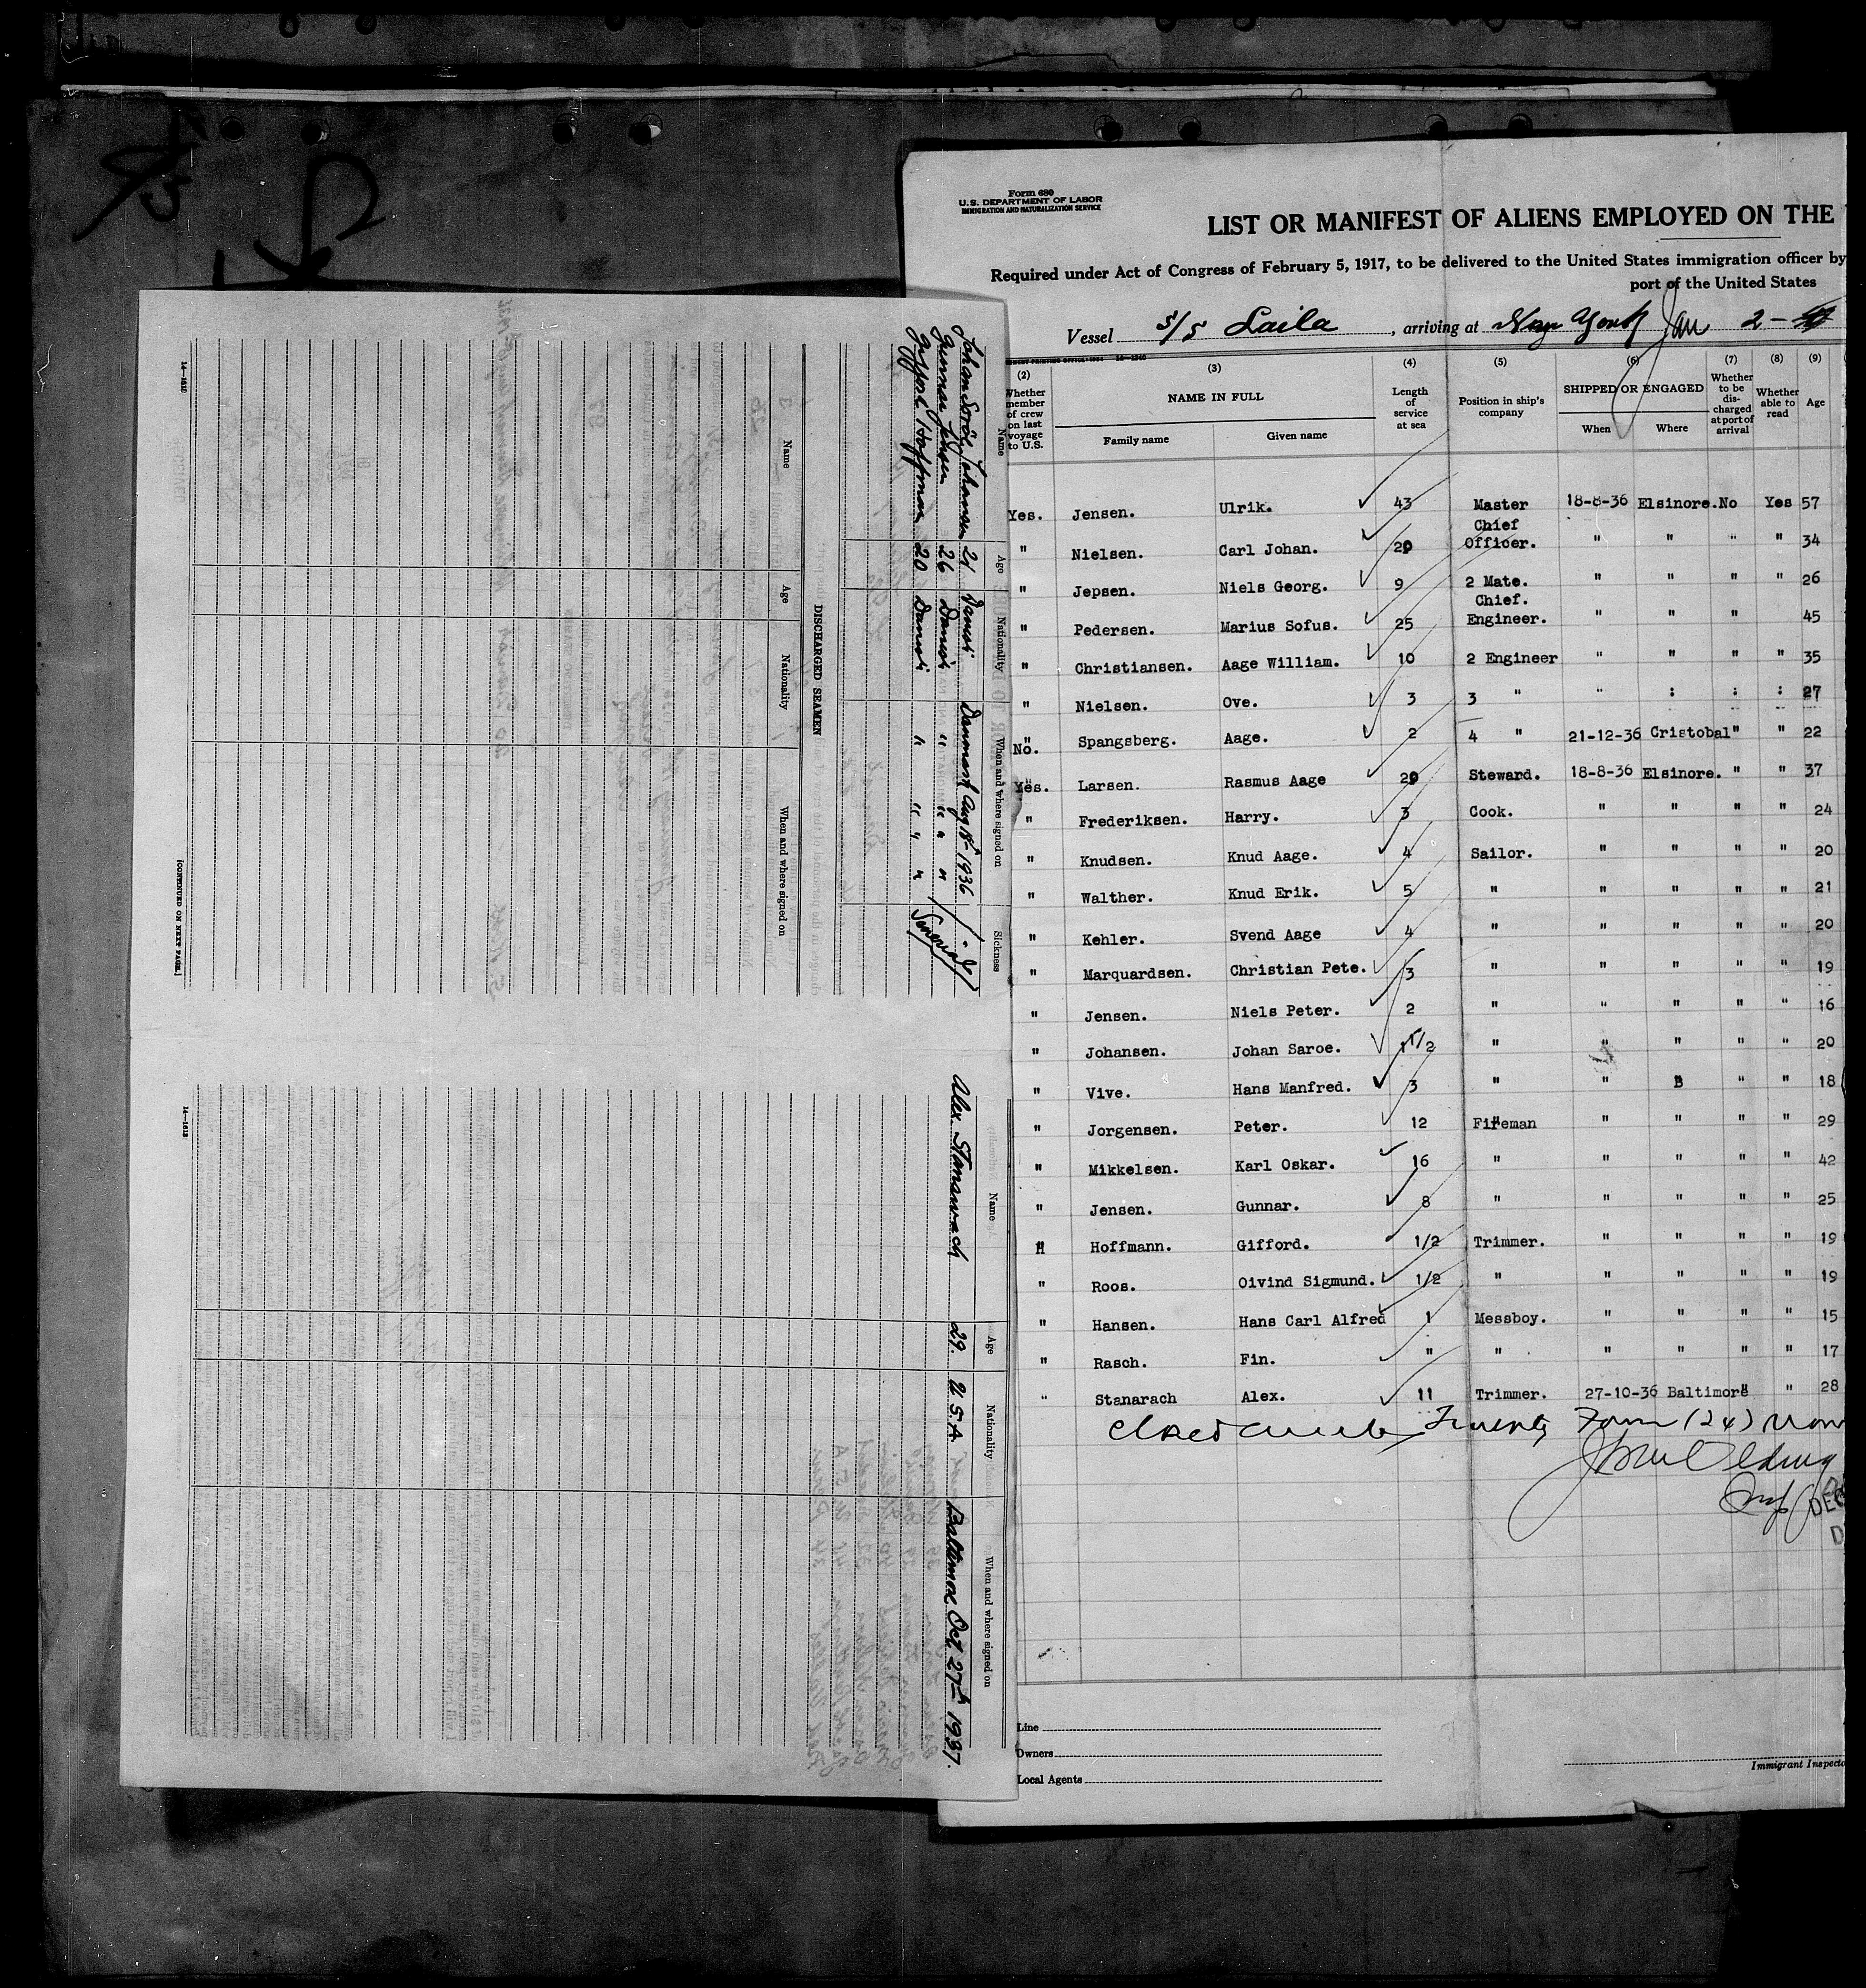 Form 680
U.S. DEPARTMENT OF LABOR
IMMIGRATION AND NATURALIZATION SERVICE
LIST OR MANIFEST OF ALIENS EMPLOYED ON THE
Required under Act of Congress of February 5, 1917, to be delivered to the United States immigration officer by
port of the United States
Vessel S/S Laila, arriving at New York Jan 2-
(2) (3) (4) (5) (6) (7) (8) (9)
Whether member of crew on last voyage to U.S. NAME IN FULL Family name Given name Length of service at sea Position in ship's company SHIPPED OR ENGAGED When Where Whether to be discharged at port of arrival Whether able to read Age
Yes. Jensen. Ulrik. 43 Master 18-8-36 Elsinore. No Yes 57
" Nielsen. Carl Johan. 20 Chief Officer. " " " " 34
" Jepsen. Niels Georg. 9 2 Mate. " " " " 26
" Pedersen. Marius Sofus. 25 Chief. Engineer. " " " 45
" Christiansen. Aage William. 10 2 Engineer " " " " 35
" Nielsen. Ove. 3 3 " " : : : 27
No. Spangsberg. Aage. 2 4 " 21-12-36 Cristobal " " 22
Yes. Larsen. Rasmus Aage 20 Steward. 18-8-36 Elsinore. " " 37
" Frederiksen. Harry. 3 Cook. " " " " 24
" Knudsen. Knud Aage. 4 Sailor. " " " " 20
" Walther. Knud Erik. 5 " " " " " 21
" Kehler. Svend Aage 4 " " " " " 20
" Marquardsen. Christian Pete. 3 " " " " " 19
" Jensen. Niels Peter. 2 " " " " " 16
" Johansen. Johan Saroe. 1 1/2 " " " " " 20
" Vive. Hans Manfred. 3 " " B " " 18
" Jorgensen. Peter. 12 Fireman " " " " 29
" Mikkelsen. Karl Oskar. 16 " " " " " 42
" Jensen. Gunnar. 8 " " " " " 25
" Hoffmann. Gifford. 1/2 Trimmer. " " " " 19
" Roos. Oivind Sigmund. 1/2 " " " " " 19
" Hansen. Hans Carl Alfred 1 Messboy. " " " " 15
" Rasch. Fin. " " " " " " 17
" Stanarach Alex. 11 Trimmer. 27-10-36 Baltimore " " 28
Twenty Four (24)
DEC
Line
Owners
Local Agents
Immigrant Inspecto
Name Age Nationality When and where signed on Sickness
Johan Johansen 21 Danish Danmark Aug 18th 1936
Gunnar Jensen 26 Danish " " "
Gifford Hoffman 20 Danish " " " "
DISCHARGED SEAMEN
Name Age Nationality When and where signed on
14—1610
[CONTINUED ON NEXT PAGE.]
Name Age Nationality When and where signed on
Alex. Stanarach 29. U.S.A. Baltimore Oct. 27th 1937.